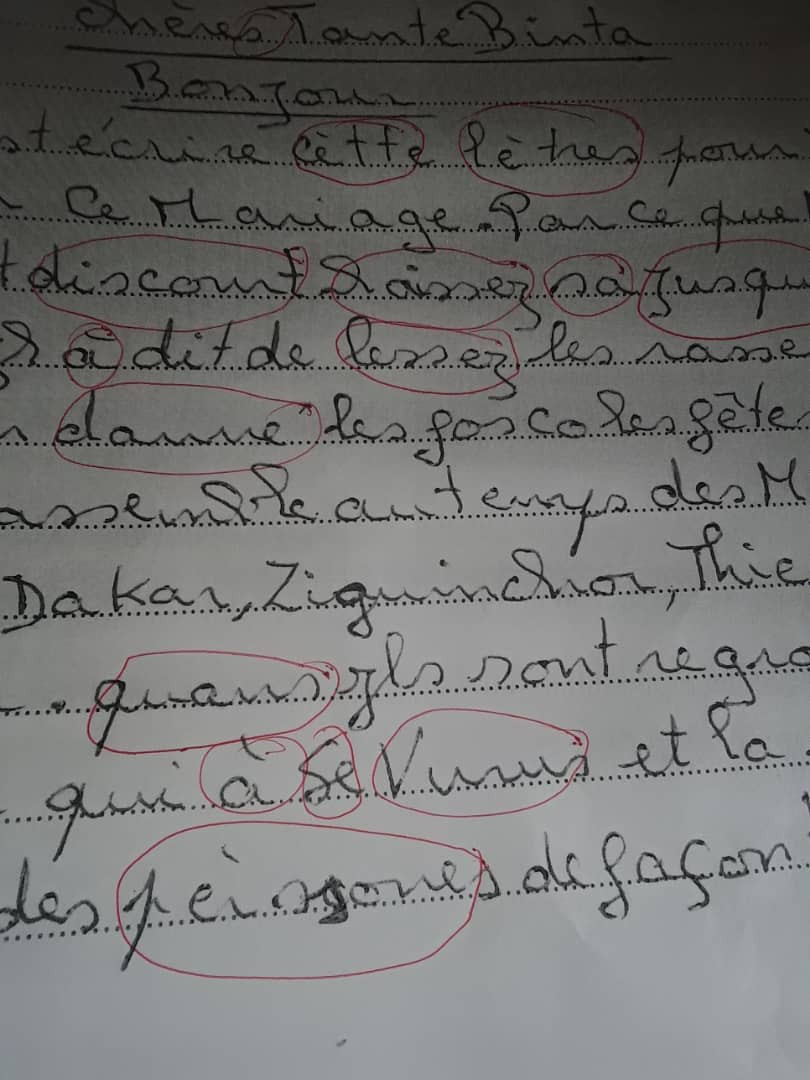 chères Tante Binta
Bonjour
t écrire cètte lètres pour
Ce Mariage. Par ce que
t discourt Laissez sà Jusqu
à dit de lessez les rasse
les fos co les fête
assemble au temps des M
Dakar, Ziguinchor, Thie
quans ils sont regro
qui à se Virus et la
des pèrsones de façon